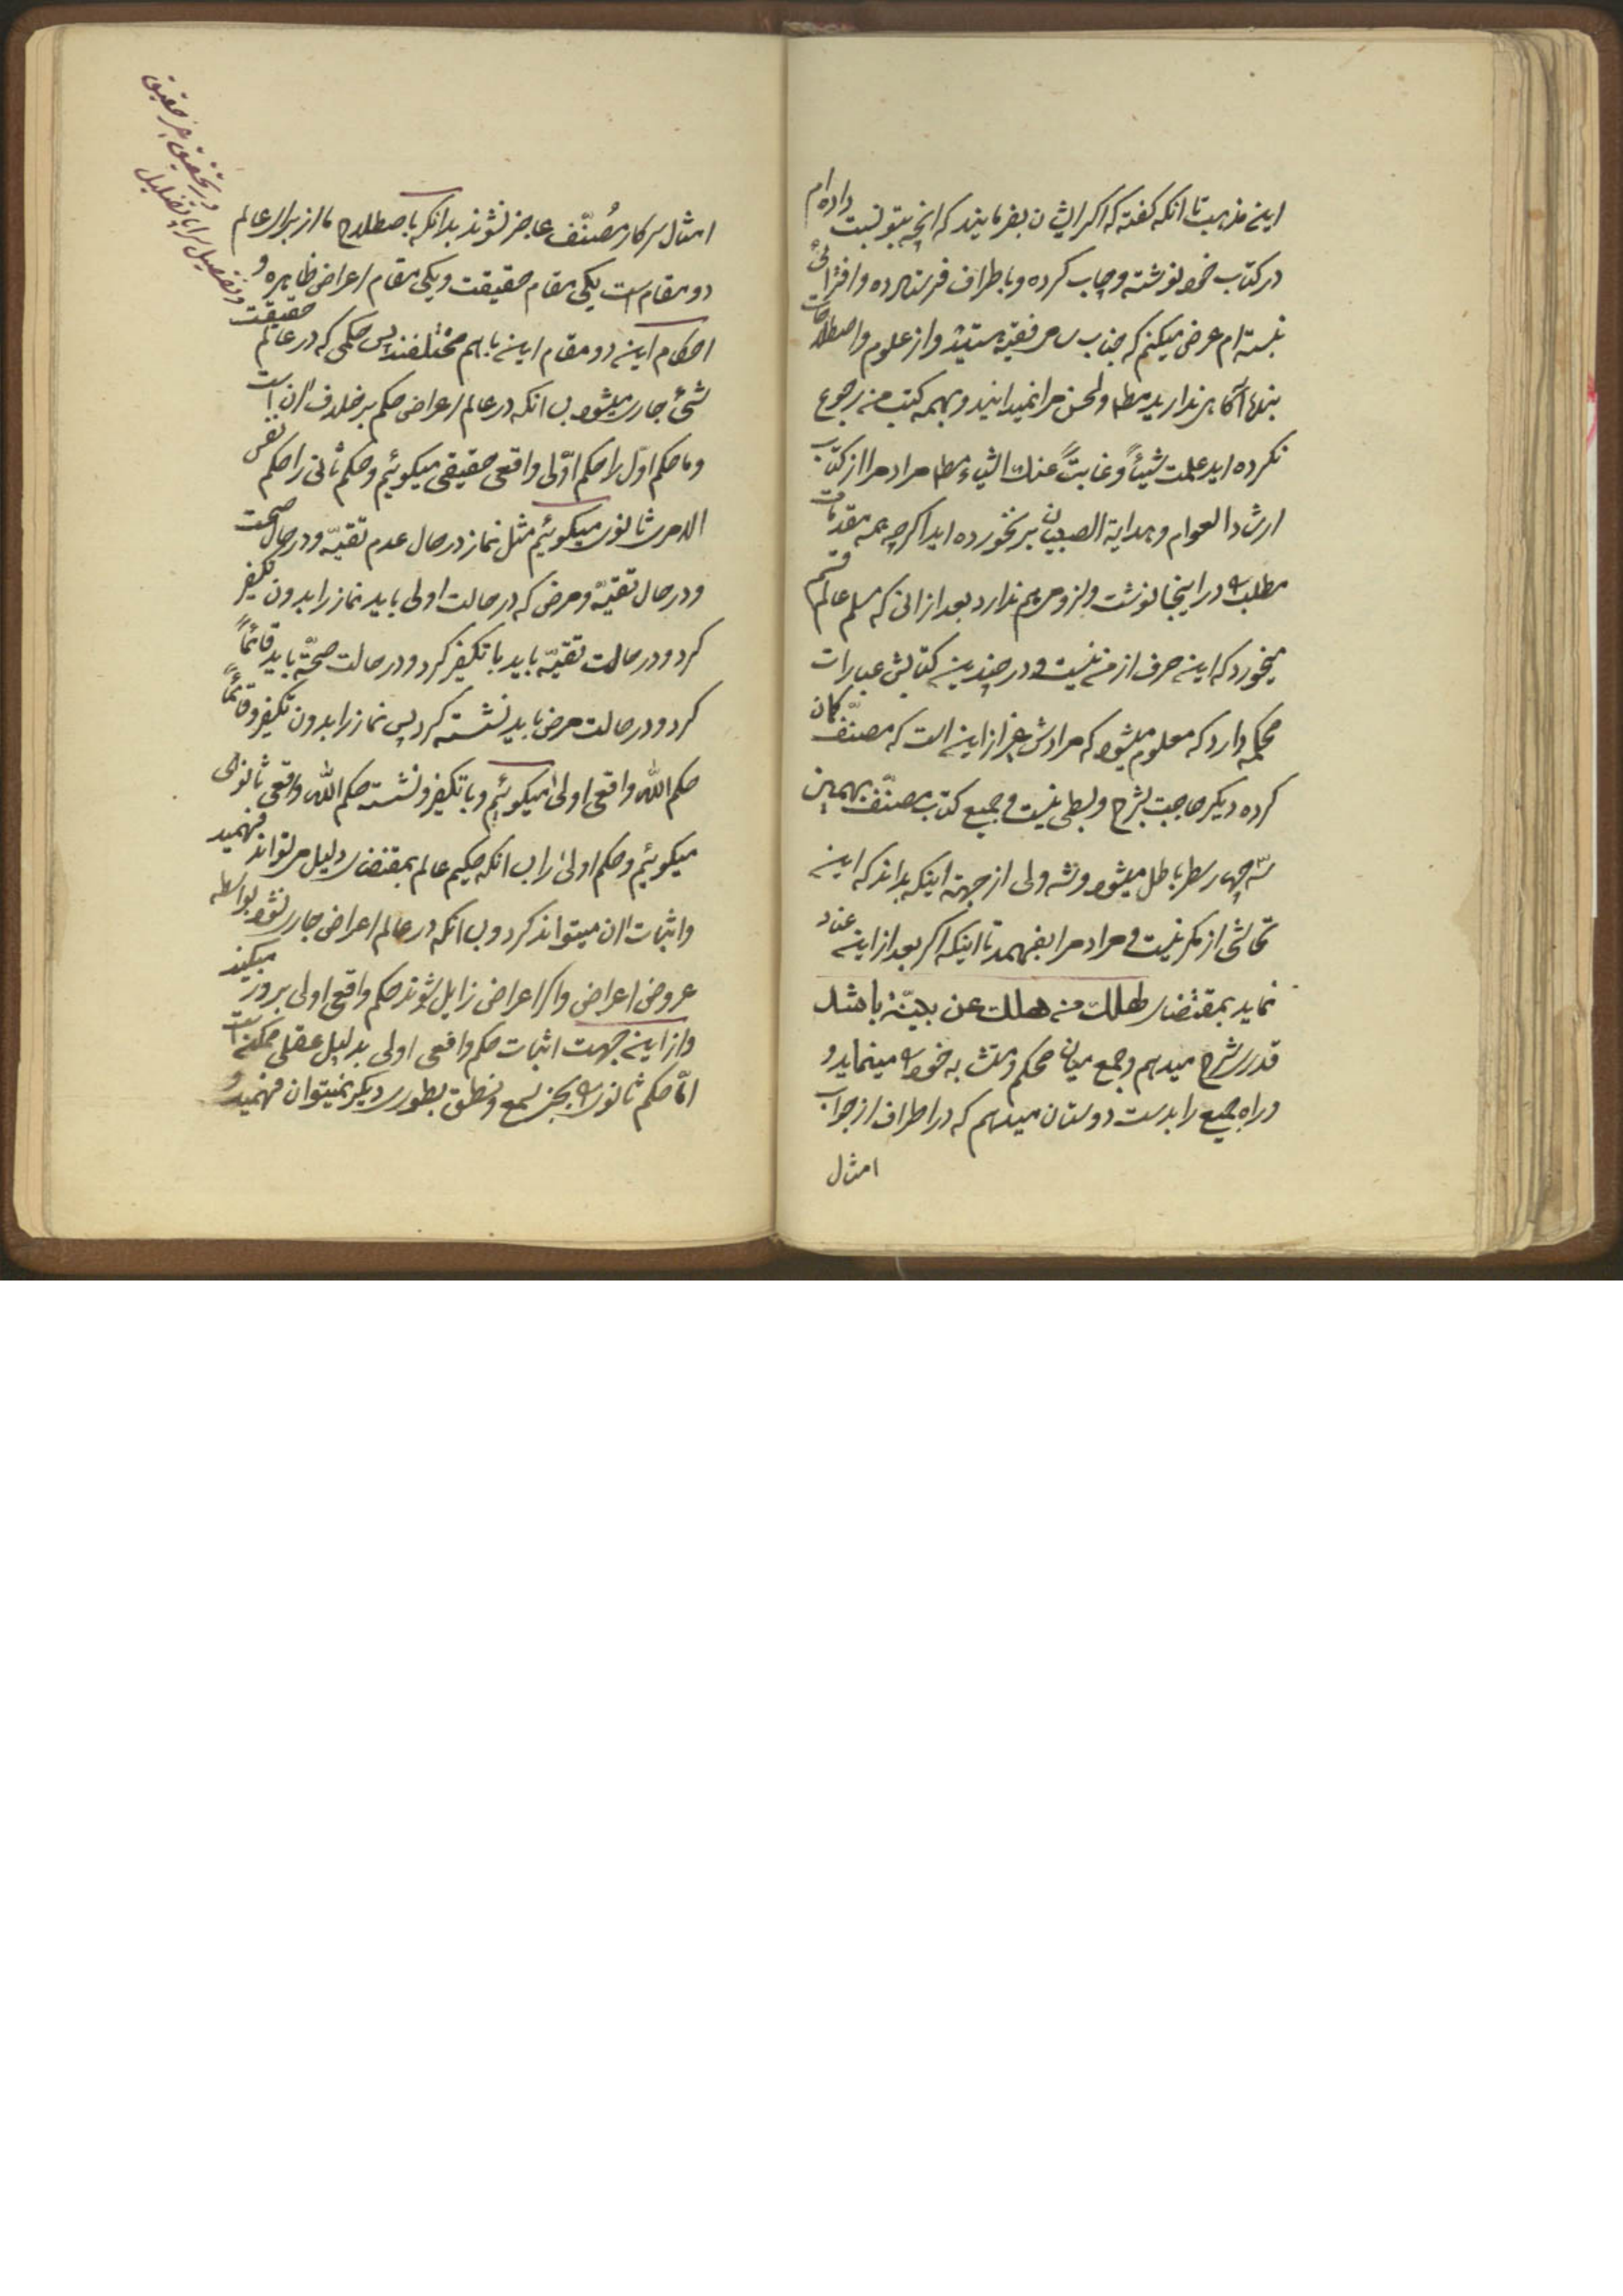 این مذهبست تا انکه گفته که اگر ایشان بفرمایند که انچه بتو نسبت داده‌ام
در کتاب خود نوشته و چاپ کرده و باطراف فرستاده و افترائی
بسته‌ام عرض میکنم که جناب سامی فقیه هستید و از علوم و اصطلاحات
بنده آگاهی ندارید مطلب و لحن مرا نمیدانید و بهمه کتب من رجوع
نکرده اید علمت شیئاً و غابت عنك اشیاء مطلب و مراد مرا از کتاب
ارشاد العوام و هدایة الصبیان برنخورده اید اگرچه همه مقدمات
مطلب در اینجا نوشت و لزومی هم ندارد بعد از انی که مسلم عالم قسم
میخورد که این حرف از من نیست و در چندین کتابش عبارات
محکمه دارد که معلوم میشود که مرادش غیر از این است که مصنّف کمان
کرده دیگر حاجت بشرح و بسطی نیست و جمیع کتاب مصنّف بهمین
سه چهار سطر باطل میشود و شد ولی از جهة اینکه بداند که این
تحاشی از مکر نیست و مراد مرا بفهمد تا اینکه اکر بعد از این عناد
نماید بمقتضای لیهلك من هلك عن بیّنة باشد
قدری شرح میدهم و جمع میان محکم و متشابه خود مینماید و
و راه جمیع را بدست دوستان میدهم که در اطراف از جواب
امثال
امثال سرکار مُصنّف عاجز نشوند بدانکه باصطلاح ما از برای عالم
دو مقام است یکی مقام حقیقت و یکی مقام اعراض ظاهره و
احکام این دو مقام این باهم مختلفند پس حکمی که در عالم حقیقت
شیء جاری میشود بسا انکه در عالم اعراض حکم بر خلاف ان است
و ما حکم اوّل را حکم اوّلی واقعی حقیقی میکوئیم و حکم ثانی را حکم نفس
الامری ثانوی میکوئیم مثل نماز در حال عدم تقیّه و در حال صحت
و در حال تقیّه و مرض که در حالت اولی باید نماز را بدون تکفیر
کرد و در حالت تقیّه باید با تکفیر کرد و در حالت صحّة باید قائماً
کرد و در حالت مرض باید نشسته کرد پس نماز را بدون تکفیر و قائماً
حکم الله واقعی اولی میکوئیم و با تکفیر و نشسته حکم الله واقعی ثانوی
میکوئیم و حکم اولی را بسا انکه حکیم عالم بمقتضای دلیل می تواند فهمید
و اثبات ان میتواند کرد و بسا انکه در عالم اعراض جاری نشود بواسطه
عروض اعراض و اکر اعراض زایل شوند حکم واقعی اولی بروز میکند
و از این جهت اثبات حکم واقعی اولی بدلیل عقلی ممکن است
امّا حکم ثانوی بجز بسمع و نطق بطوری دیگر نمیتوان فهمید و
در تحقیق جزء حقیقی
و تفصیل